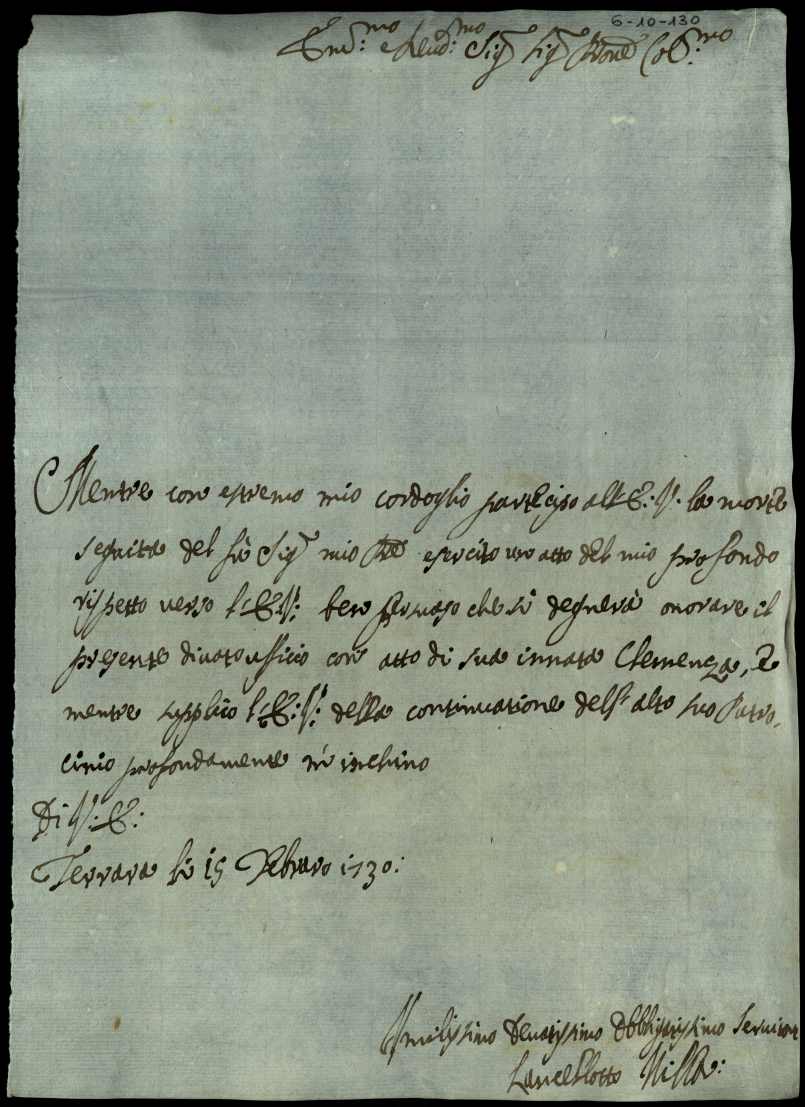 6-10-130
Em:mo e Reud:mo Sig.r Sig.r Pron̄e Col:mo
Mentre con estremo mio cordoglio partecipo all'E: V: la morte
seguita del fù Sig.r mio Pad.e esercito un atto del mio profondo
rispetto verso l'E: V: ben persuaso che si degnerà onorare il
presente divoto ufficio con atto di sua innata Clemenza, e
mentre supplico l'E: V: della continuatione dell'alto suo Patro,
cinio profondamente m'inchino
Di V: E:
Ferrara li 15 Febraro 1730:
Umilissimo Deuotissimo Obbligatissimo Seruitore
Lancellotto Villa: